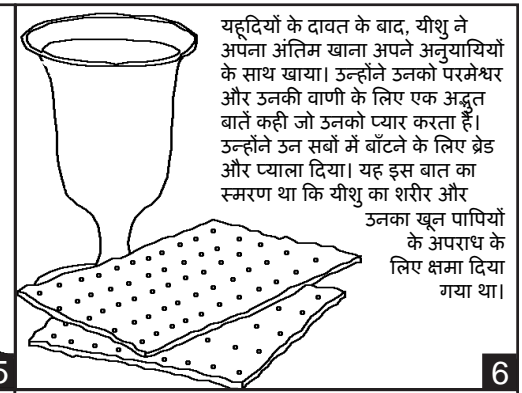 यहूदियों के दावत के बाद, यीशु ने
अपना अंतिम खाना अपने अनुयायियों
के साथ खाया। उन्होंने उनको परमेश्वर
और उनकी वाणी के लिए एक अद्भुत
बातें कही जो उनको प्यार करता है।
उन्होंने उन सबों में बाँटने के लिए ब्रेड
और प्याला दिया। यह इस बात का
स्मरण था कि यीशु का शरीर और
उनका खून पापियों
के अपराध के
लिए क्षमा दिया
गया था।
5
6